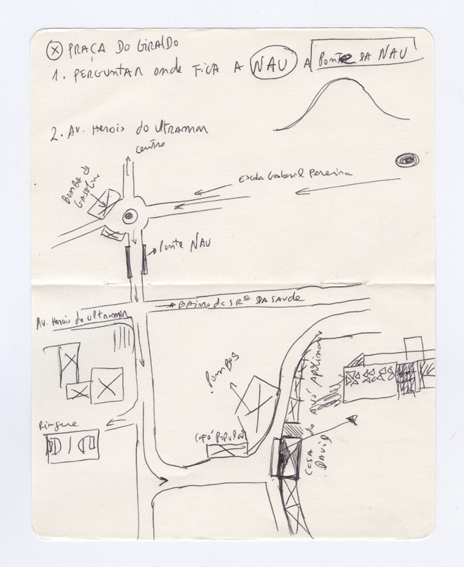 PRAÇA DO GIRALDO
1. PERGUNTAR onde FICA A NAU A PONTE DA NAU
2. Av. Herois do Ultramar
centro
Bomba de
Gasolina
Escola Gabriel Pereira
Ponte NAU
BAIRRO de SRª DA SAUDE
Av. Herois do Ultramar
Pombos
Ringue
Casa do
DAVID